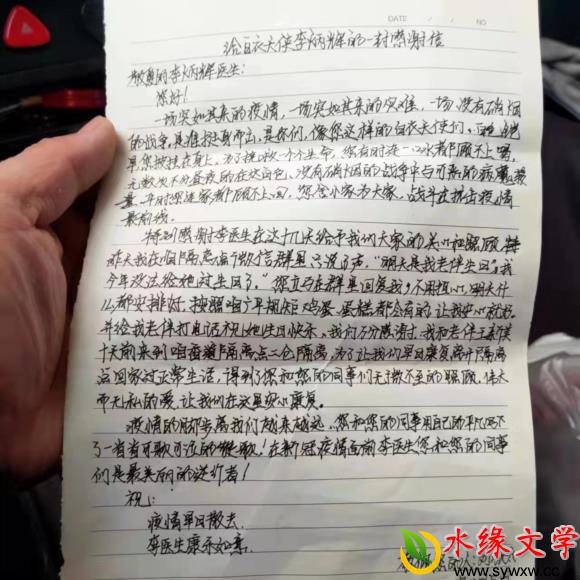 DATE / / NO
给白衣天使李炳辉的一封感谢信
敬爱的李炳辉医生:
您好!
一场突如其来的疫情,一场突如其来的灾难,一场没有硝烟
的战争,是谁挺身而出,是你们,像您这样的白衣天使们。
早您被挂在身上,为了挽救一个个生命,您有时连一口水都顾不上喝,
无数次不分昼夜的在这白色、没有硝烟的战争中与可恶的病毒较
量,平时您连家都顾不上回,您舍小家为大家,战斗在抗击疫情
最前线。
特别感谢李医生在这十几天给予我们大家的关心和照顾,
昨天我在临隔离点微信群里只说了声,"明天是我老伴生日,我
今年没法给她过生日了。"您立马在群里回复我,不用担心,明天什
么都安排好,按照咱一年期短鸡蛋、蛋糕都会有的,让我安心就好,
并给我老伴打电话祝她生日快乐,我们万分感谢,我和老伴
十天前来到隔离点二仓隔离,为了让我们早日康复离开隔离
点回家过正常生活,得到了您和您的同事们无微不至的照顾,伟大
而无私的爱,让我们在这里安心康复。
疫情的脚步离我们越来越远,您和您的同事用自己的平凡写下
了一首首可歌可泣的赞歌!在新冠疫情面前李医生您和您的同事
们是最美丽的逆行者!
祝:
疫情早日散去
李医生康乐如意
水缘文学
www.sywxw.cc